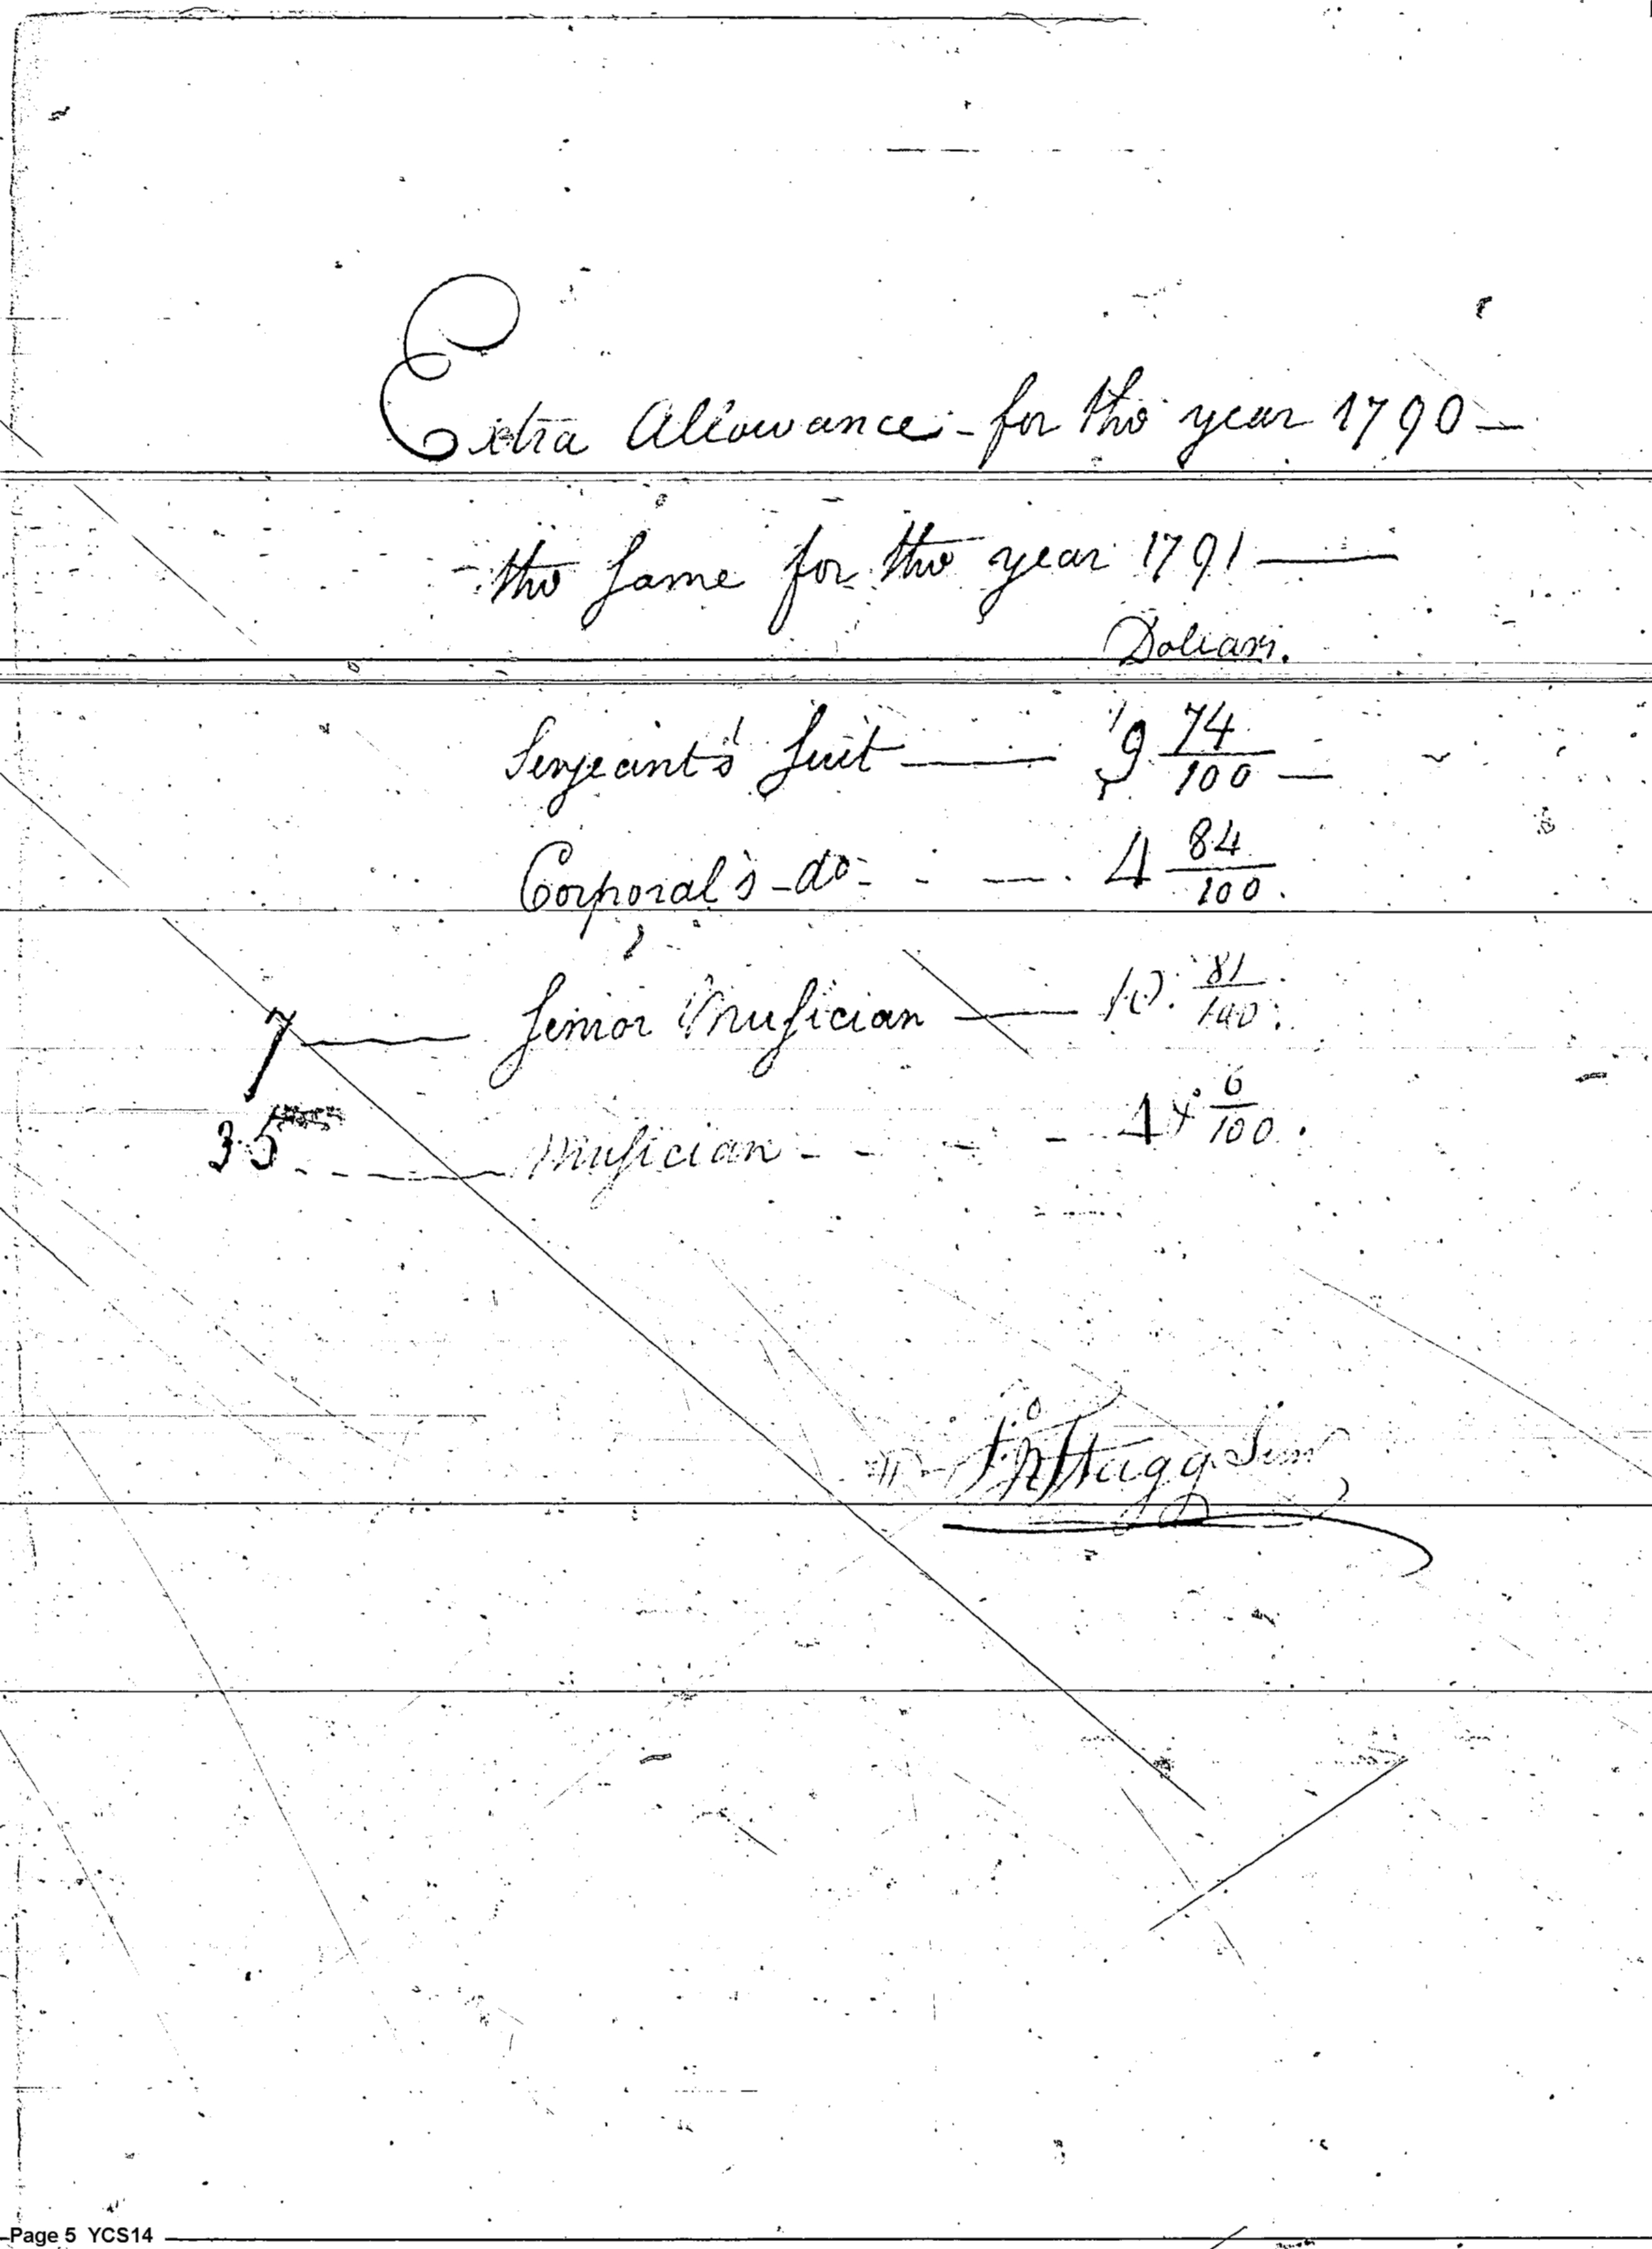 Extra Allowance - for the year 1790 —
- the same for the year 1791 —
Dollars.
Sergeant's suit — 9 74/100 —
Corporal's - do - - — . 4 84/100.
7 — Senior Musician — 10. 81/100.
35 - - - — Musician - - - - 6/100.
Jno Stagg Jun
Page 5 YCS14